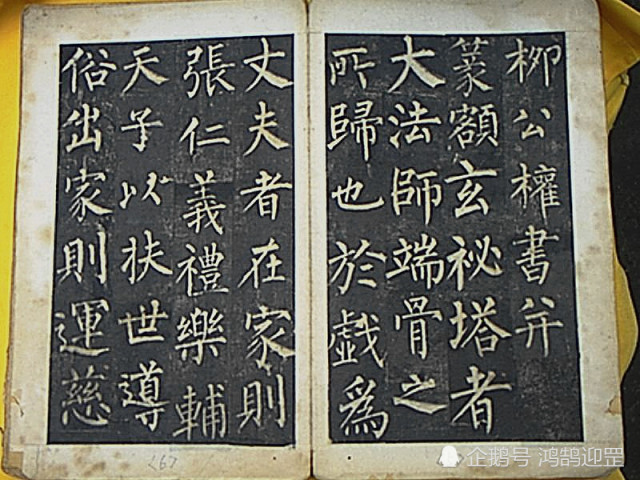 柳公權書并
篆額玄祕塔者
大法師端骨之
所歸也於戲爲
丈夫者在家則
張仁義禮樂輔
天子以扶世導
俗出家則運慈
企鹅号 鸿鹄迎罡